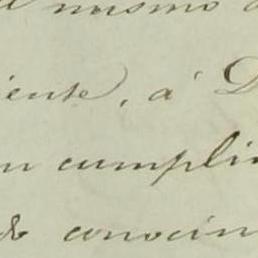 mismo
iente, á D
n cumpli
do conocim